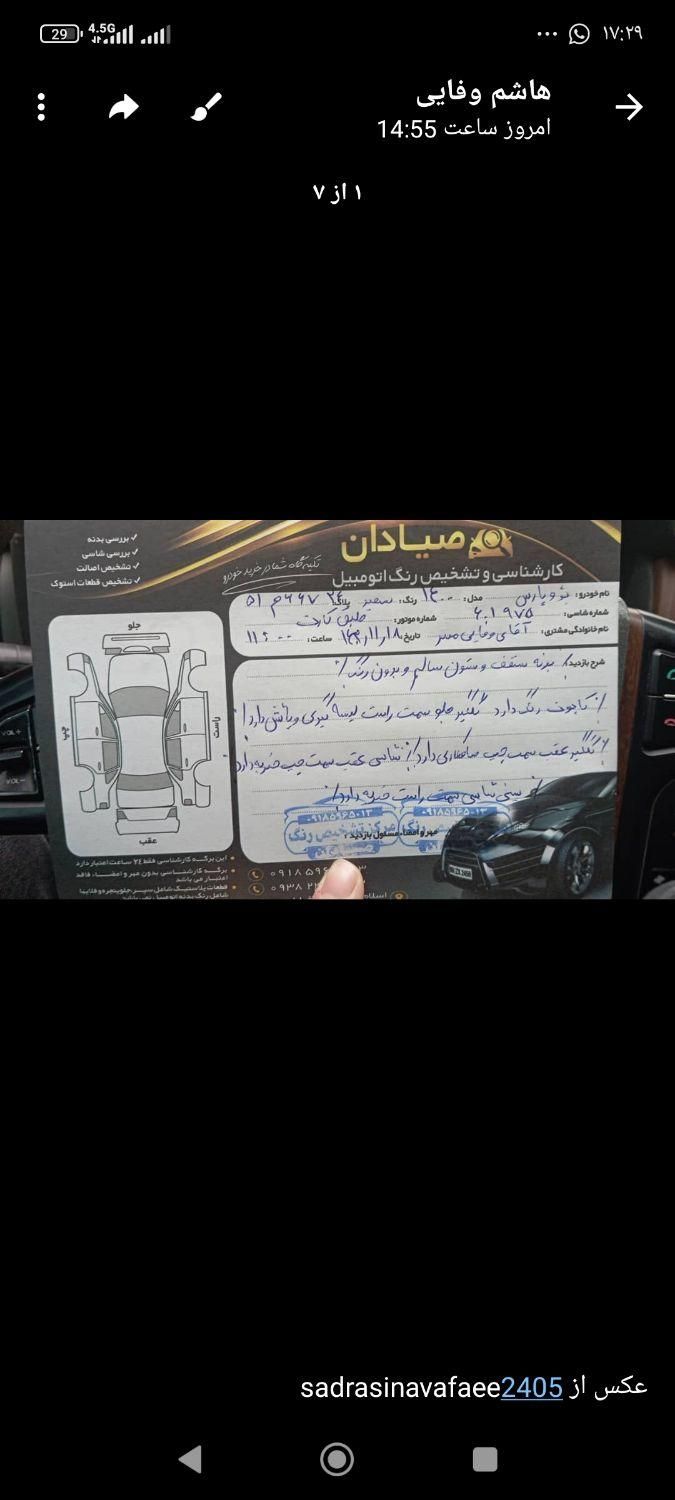 29
4.5G
۱۷:۲۹
هاشم وفایی
امروز ساعت 14:55
۱ از ۷
صیادان
کارشناسی و تشخیص رنگ اتومبیل
تکیه گاه شما در خرید خودرو
✓ بررسی بدنه
✓ بررسی شاسی
✓ تشخیص اصالت
✓ تشخیص قطعات استوک
نام خودرو: پژو پارس مدل: ۱۴۰۰ رنگ: سفید پلاک:
شماره شاسی: ۶۰۱۹۷۵ شماره موتور: طبق کارت
نام خانوادگی مشتری: آقای وفایی تاریخ: ساعت: ۱۱:۰۰
شرح بازدید: بدنه سقف و ستون سالم و بدون رنگ
کاپوت رنگ دارد گلگیر جلو سمت راست لیسه گیری و پاش دارد
گلگیر عقب سمت چپ صافکاری دارد شاسی عقب سمت چپ ضربه دارد
سینی شاسی سمت راست ضربه دارد
۰۹۱۸۵۹۶۵۰۱۳
۰۹۱۸۵۹۶۵۰۱۳
مرکز تشخیص رنگ
مهر و امضاء مسئول بازدید:
جلو
چپ
راست
عقب
این برگه کارشناسی فقط ۲۴ ساعت اعتبار دارد
برگه کارشناسی بدون مهر و امضاء، فاقد
اعتبار می باشد
قطعات پلاستیک شامل سپر، جلوپنجره و قلاپها
شامل رنگ بدنه اتومبیل نمی باشد
۰۹۱۸ ۵۹۶
۰۹۳۸ ۲۲
اسلام
VOL+
VOL-
عکس از sadrasinavafaee2405